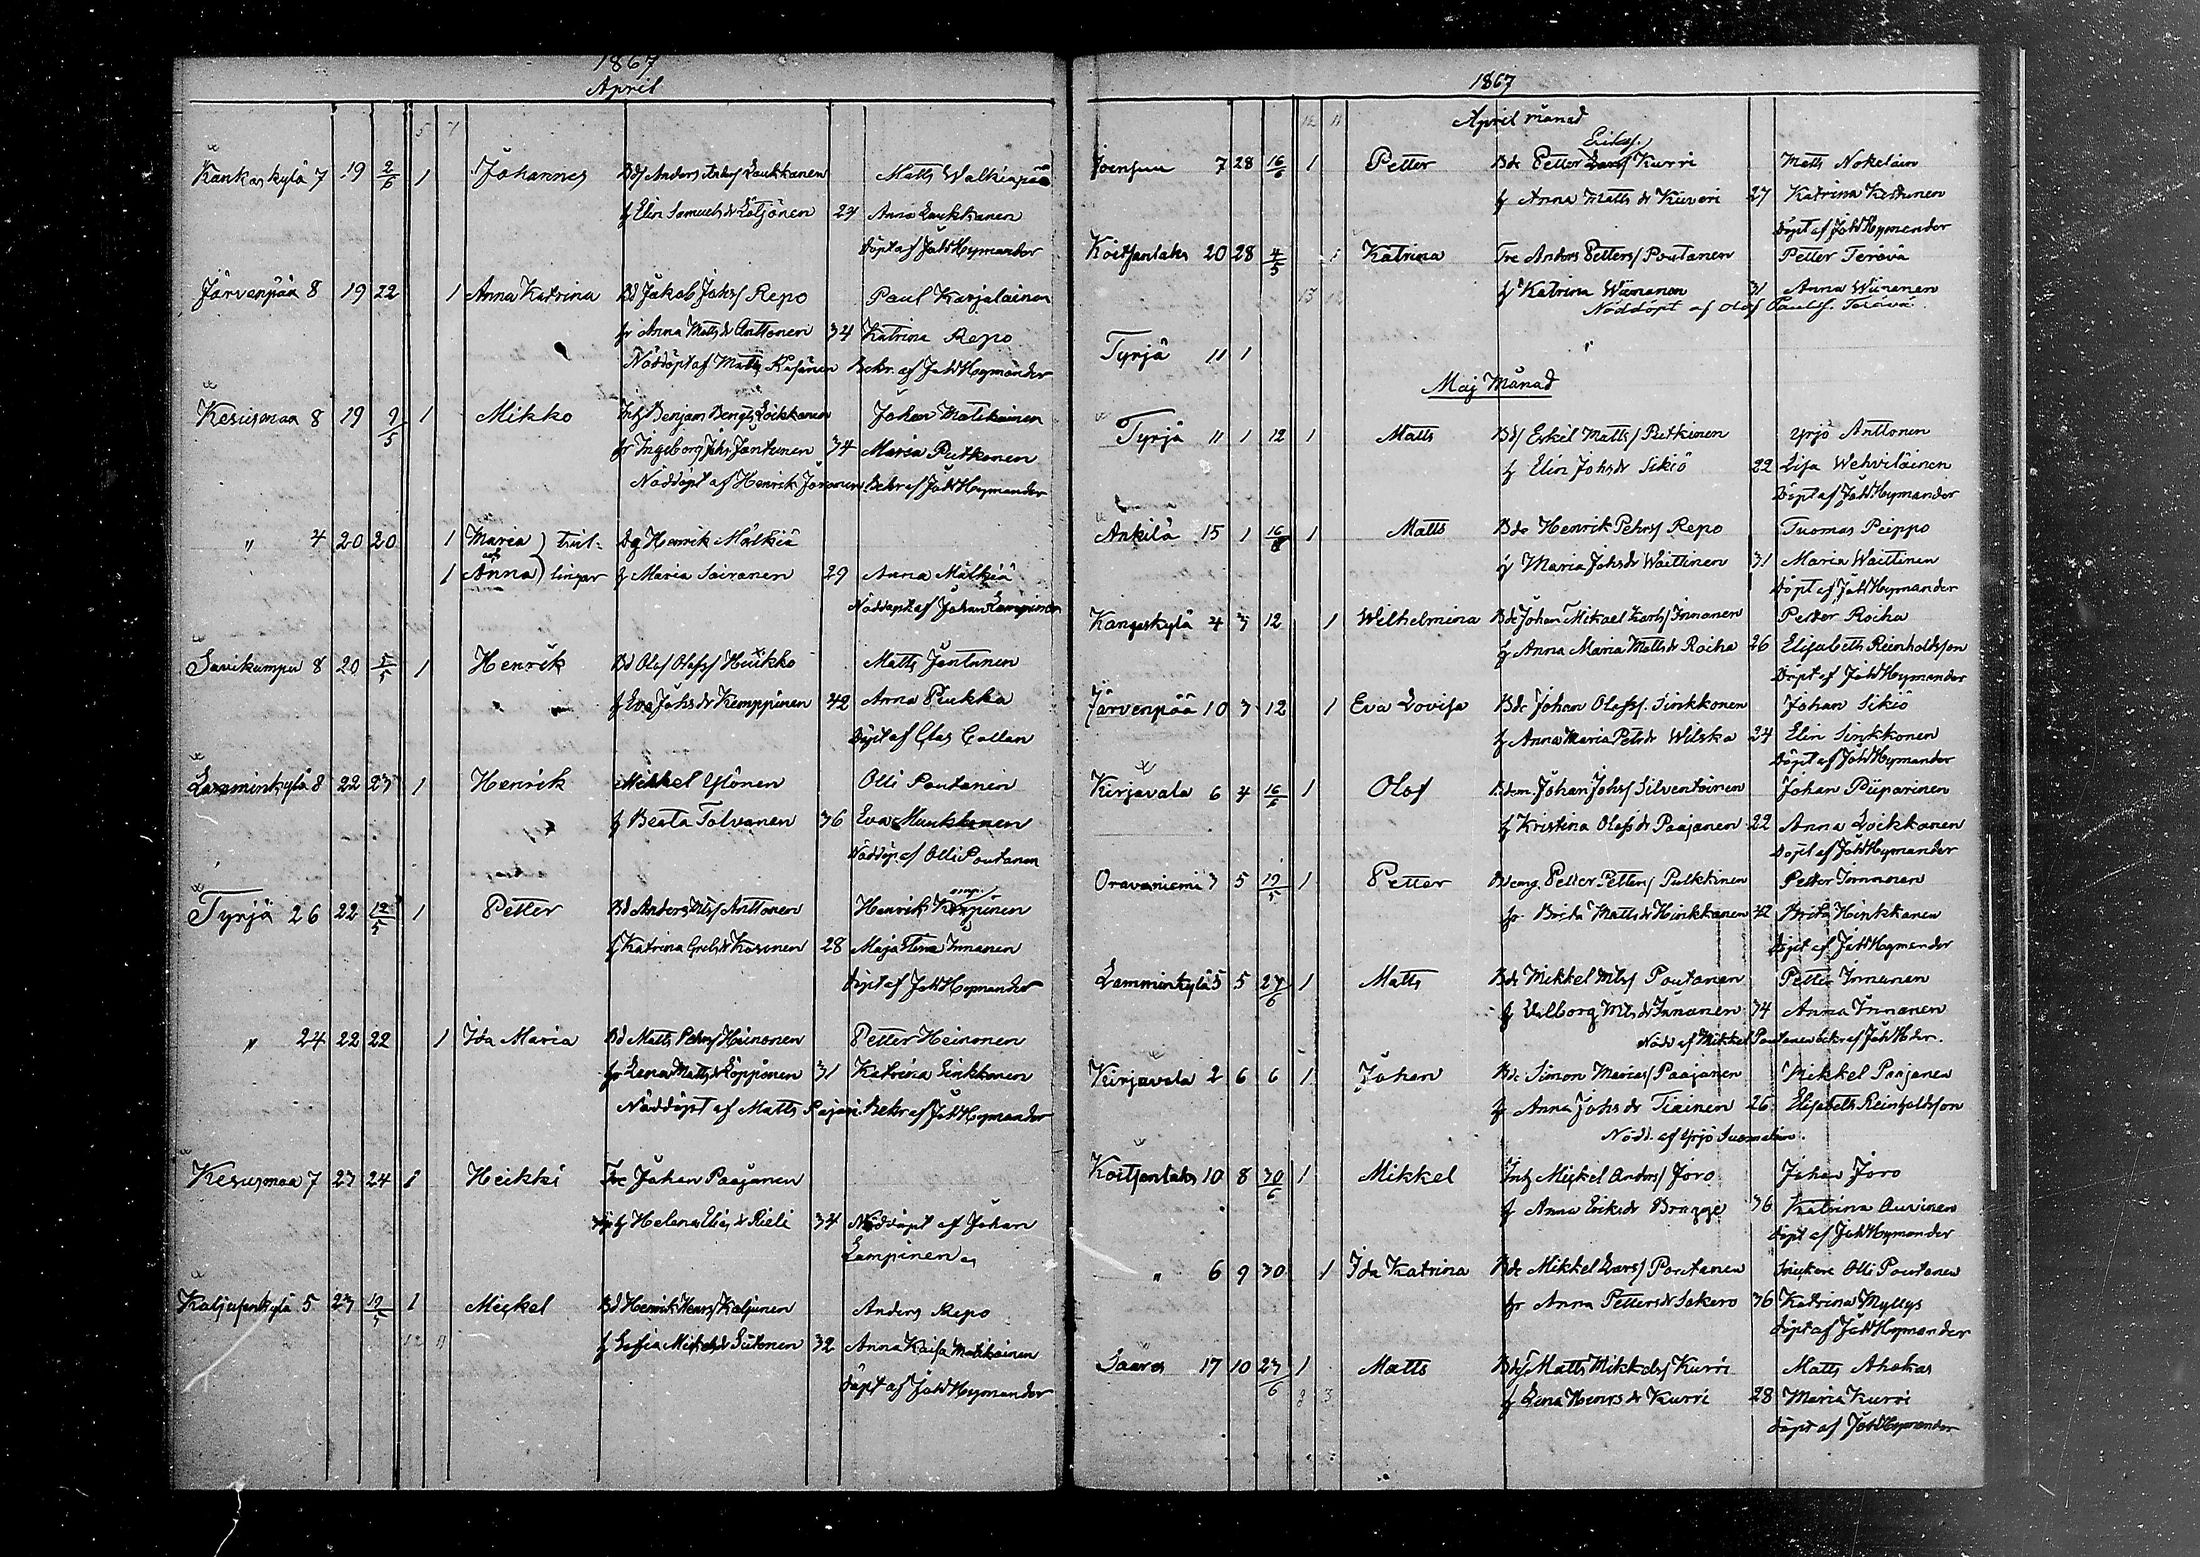 1867
April
5 7
Kankaskylä 7 19 2/6 1 Johannes Bds Anders Laukkanen Matts Walkiapää
f Elin Samuelsdr Lötjönen 24 Anna Laukkanen
Döpt af Joh Heymander
Järvenpää 8 19 22 1 Anna Katrina Bd Jakob Johs/ Repo Paul Karjalainen
fr Anna Mattsdr Anttonen 34 Katrina Repo
Nöddöpt af Matts Bekr. af Joh Heymander
Kesusmaa 8 19 9/5 1 Mikko Inh Benjam Bengts Loikkanen Johan Matikainen
fr Ingeborg Johs Jantunen 34 Maria Putkonen
Nöddöpt af Henrik Joronen Bekr af Joh Heymander
" 4 20 20 1 Maria tvil- Dg Henrik Mälkiä
och
1 Anna lingar f Maria Sairanen 29 Anna Mälkiä
Nöddöpt af Johan Lampinen
Savikumpu 8 20 5/5 1 Henrik Bd Olof Olofs/ Heikko Matts Jantunen
f Eva Johsdr Kemppinen 42 Anna Pukka
Döpt af Clas Collan
Lamminkylä 8 22 23 1 Henrik Mikkel Ylönen Olli Poutanen
f Beata Tolvanen 36 Eva Muukkonen
Nöddöp af Olli Poutanen
Tyrjä 26 22 12/5 1 Petter Bd Anders Mts/ Anttonen Henrik
f Katrina Kosonen 28 Maja Stina Innanen
Döpt af Joh Heymander
" 24 22 22 1 Ida Maria Bd Matts Pehrs/ Heinonen Petter Heinonen
fr Lena Mattsdr Löppönen 31 Katrina Sinkkonen
Nöddöpt af Matts Pajari Bekr af Joh Heymander
Kesusmaa 7 23 24 1 Heikki Tre Johan Paajanen
f Helena Eliasdr Rieli 34 Nöddöpt af Johan
Lampinen
Kaljusenkylä 5 23 19/5 1 Mickel Bd Henrik Henrs/ Kaljunen Anders Repo
12 11
f Sofia Mickelsdr Liutonen 32 Anna Kaisa Matikainen
döpt af Joh Heymander
1867
April månad
12 11
Eriks/
Joensuu 7 28 16/6 1 Petter Bde Petter Kurri Matts Nokelain
f Anna Matts dr Kuivri 27 Katrina Kettunen
Döpt af Joh Heymander
Koitsanlaks 20 28 4/5 1 Katrina Tre Anders Petters/ Poutanen Petter Terävä
13 12
f Katrina Wänänen 31 Anna Wänänen
Nöddöpt af Olof Paulss. Terävä.
Tyrjä 11 1
Maj Månad
Tyrjä 11 1 12 1 Matts Bds/ Eskel Matts/ Putkinen Yrjö Anttonen
f Elin Johsdr Sikiö 22 Lisa Wehviläinen
Döpt af Joh Heymander
Ankilä 15 1 16/6 1 Matts Bde Henrik Pehrs/ Repo Tuomas Peippo
f Maria Johsdr Waittinen 31 Maria Waittinen
Döpt af Joh Heymander
Kangaskylä 4 3 12 1 Wilhelmina Bde Johan Mikael Karls/ Innanen Petter Roiha
f Anna Maria Mattsdr Roiha 26 Elisabeth Reinholdsson
Döpt af Joh Heymander
Järvenpää 10 3 12 1 Eva Lovisa Bde Johan Olofss. Sinkkonen Johan Sikiö
f Anna Maria Petsdr Wilska 24 Elin Sinkkonen
Döpt af Joh Heymander
Kirjavala 6 4 16/6 1 Olof Bdem. Johan Johs/ Silventoinen Johan Piiparinen
f Kristina Olofsdr Paajanen 22 Anna Loikkanen
Döpt af Joh Heymander
Oravaniemi 3 5 19/5 1 Petter Petter Petters/ Pulkkinen Petter Innanen
fr Brita Mattsdr Hinkkanen 42 Brita Hinkkanen
Döpt af Joh Heymander
Lamminkylä 5 5 27/6 1 Matts Bde Mikkel Mts/ Poutanen Petter Innanen
f Valborg Mtsdr Innanen 34 Anna Innanen
Nödd af Mikkel Poutanen bekr af Joh Hder.
Kirjavala 2 6 6 1 Johan Bde Simon Marias/ Paajanen Mikkel Paajanen
f Anna Johsdr Tiainen 26 Elisabeth Reinholdsson
Nödd. af Yrjö Suomalain.
Koitsanlaks 10 8 30/6 1 Mikkel Inh Mickel Anders/ Joro Johan Joro
f Anna Eriksdr Brugge 36 Katrina Auvinen
döpt af Joh Heymander
" 6 9 30 1 Ida Katrina Bde Mikkel Lars/ Poutanen Olli Poutanen
fr Anna Pettersdr Sakero 36 Katrina Myllys
döpt af Joh Heymander
Saaros 17 10 23/6 1 Matts Bds/ Matts Mikkels/ Kurri Matts Ahokas
8 3
f Lena Henrsdr Kurri 28 Maria Kurri
döpt af Joh Heymander